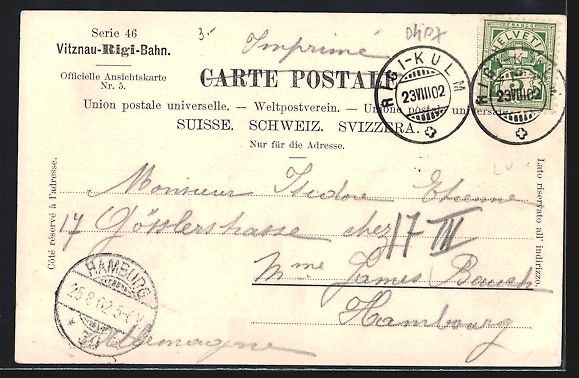 Serie 46
Vitznau-Rigi-Bahn.
Officielle Ansichtskarte
Nr. 5.
3.
Imprimé
CARTE POSTALE.
Union postale universelle. – Weltpostverein. – Unione postale universale.
SUISSE. SCHWEIZ. SVIZZERA.
Nur für die Adresse.
RIGI-KULM
23VIII02
HELVETIA
FRANCO
5
23VIII02
Côté réservé à l'adresse.
Lato riservato all' indirizzo.
Monsieur Isidore Etienne
17 Gösslerstrasse chez
17 III
Mme James Bauch
Hambourg
Allemagne
HAMBURG
25.8.02.5-6V